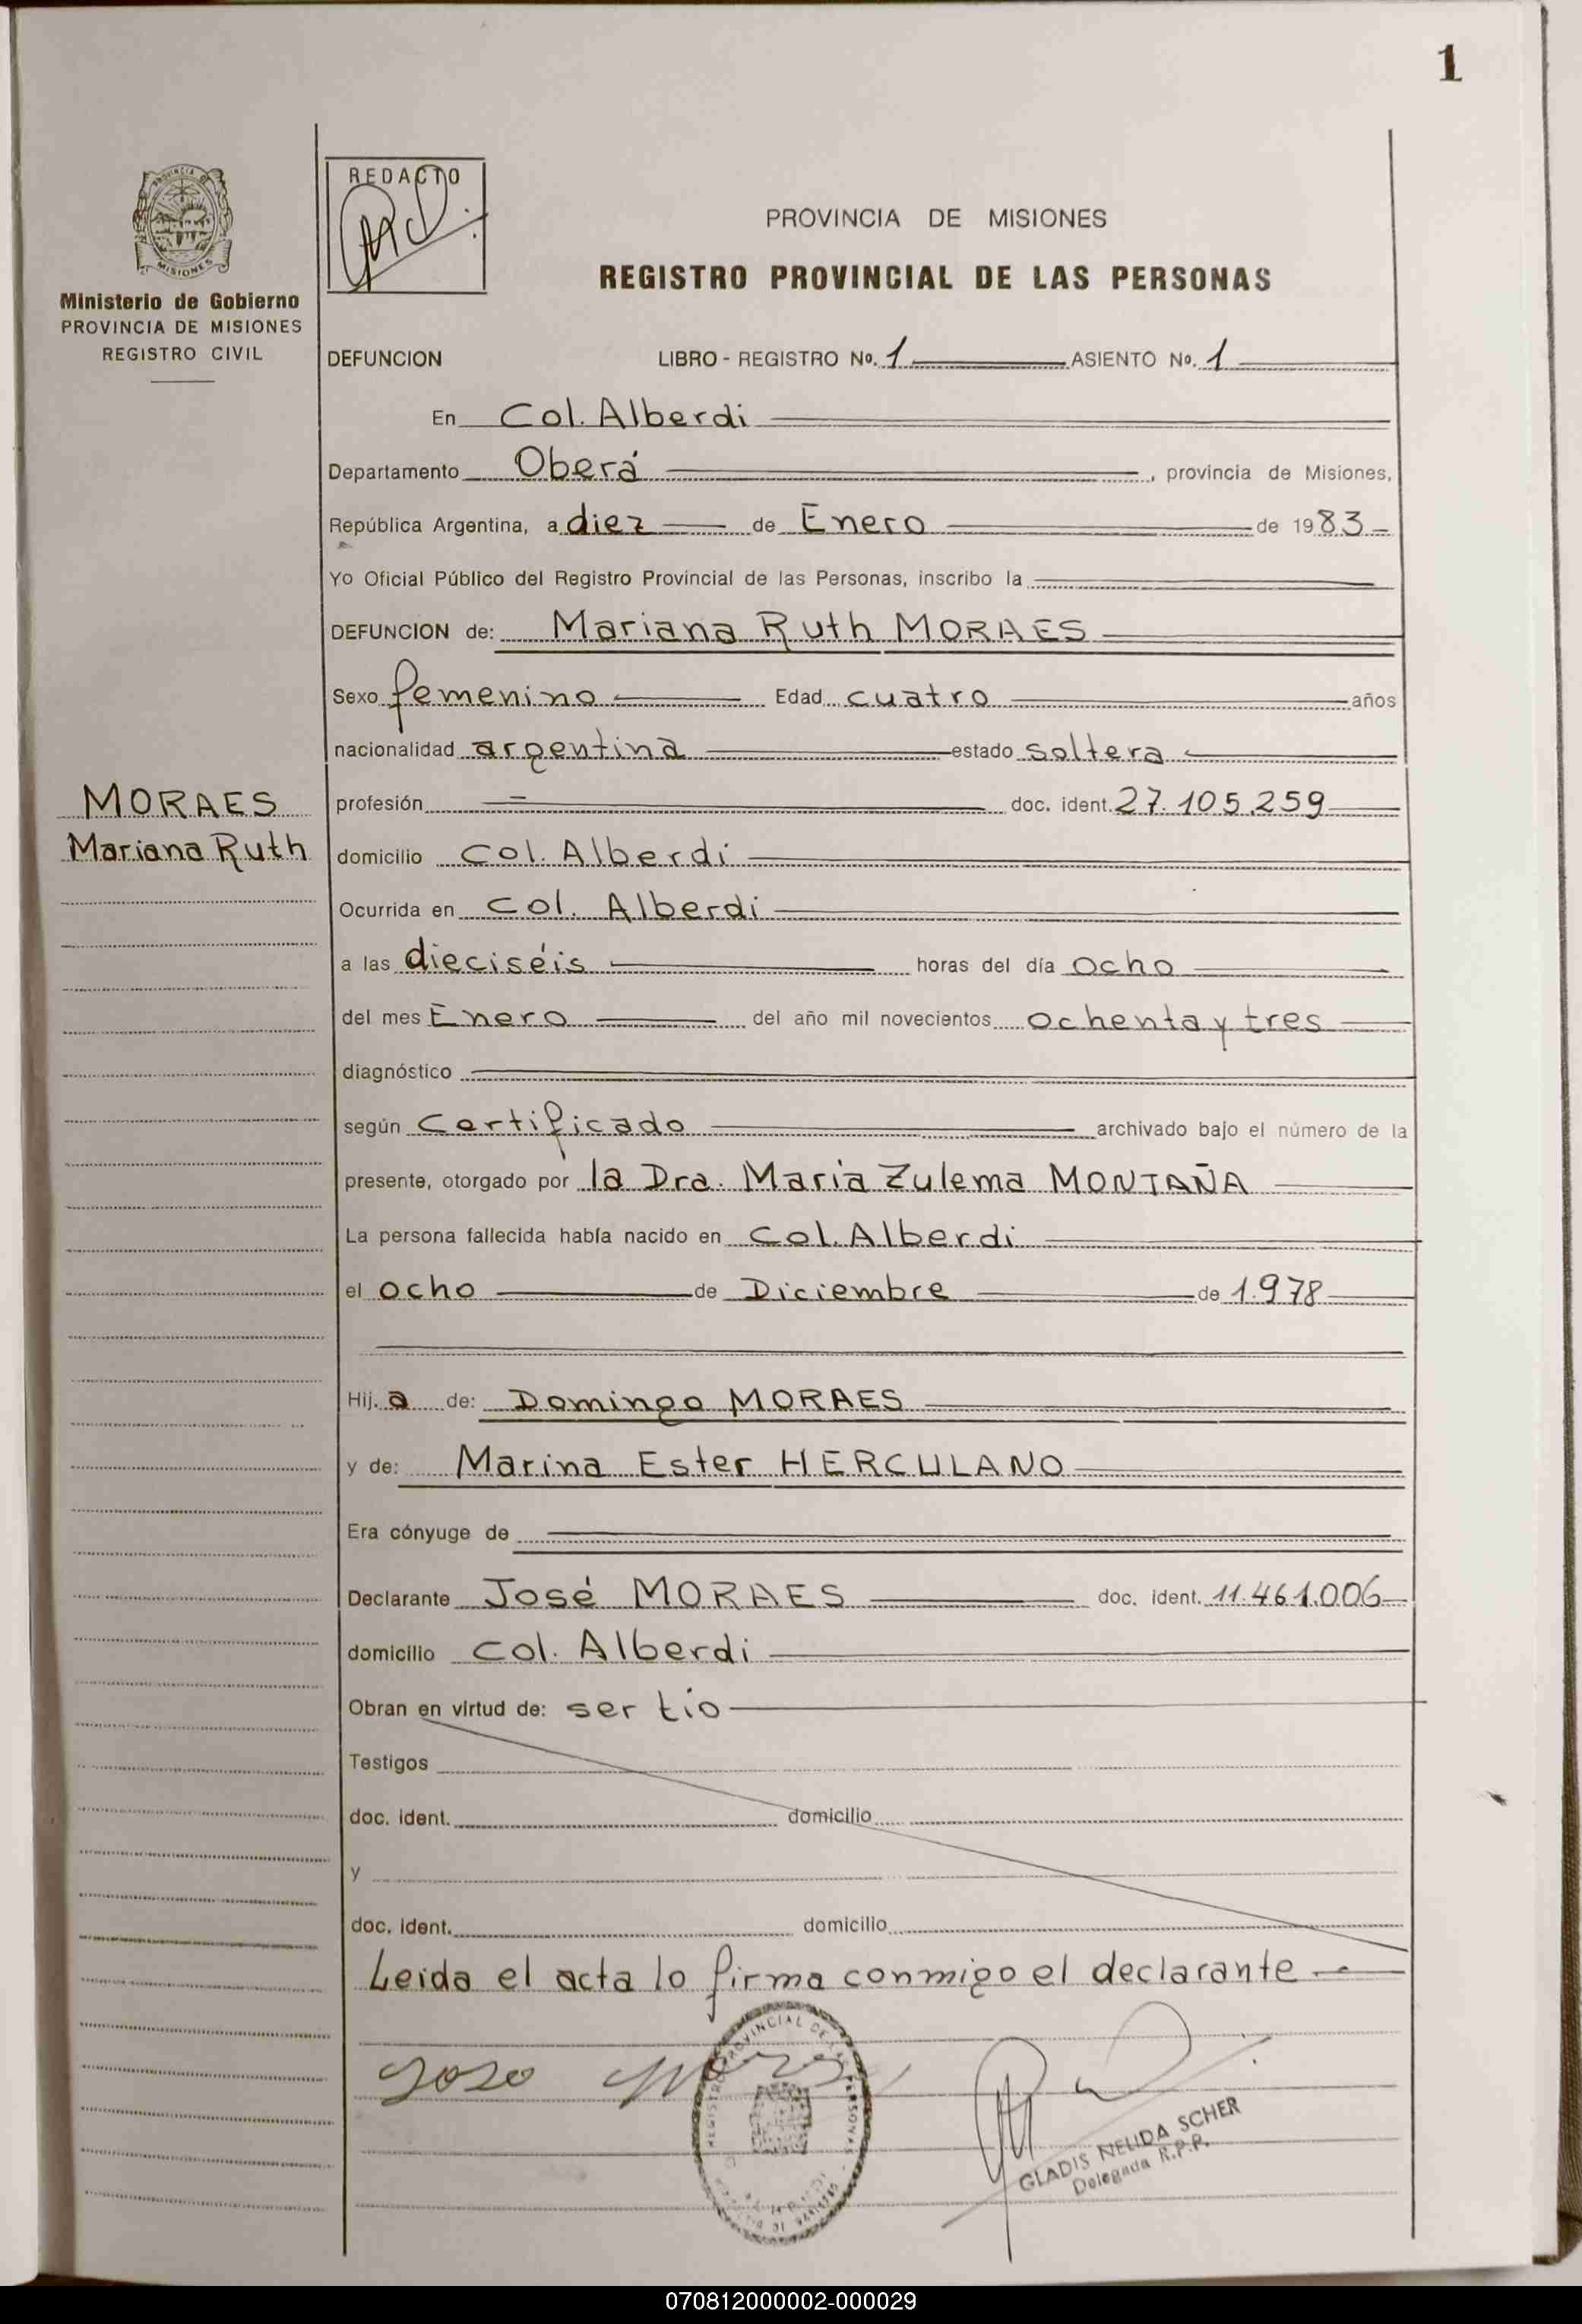 1
PROVINCIA DE
MISIONES
Ministerio de Gobierno
PROVINCIA DE MISIONES
REGISTRO CIVIL
REDACTO
PROVINCIA DE MISIONES
REGISTRO PROVINCIAL DE LAS PERSONAS
DEFUNCION LIBRO - REGISTRO No. 1 ASIENTO No. 1
En Col. Alberdi
Departamento Oberá, provincia de Misiones,
República Argentina, a diez de Enero de 1983
Yo Oficial Público del Registro Provincial de las Personas, inscribo la
DEFUNCION de: Mariana Ruth MORAES
Sexo femenino Edad cuatro años
nacionalidad argentina estado soltera
MORAES
Mariana Ruth
profesión doc. ident. 27.105.259
domicilio Col. Alberdi
Ocurrida en Col. Alberdi
a las dieciséis horas del día ocho
del mes Enero del año mil novecientos ochenta y tres
diagnóstico
según Certificado archivado bajo el número de la
presente, otorgado por la Dra. Maria Zulema MONTAÑA
La persona fallecida había nacido en Col. Alberdi
el ocho de Diciembre de 1.978
Hij. a de: Domingo MORAES
y de: Marina Ester HERCULANO
Era cónyuge de
Declarante José MORAES doc. ident. 11.461.006
domicilio Col. Alberdi
Obran en virtud de: ser tío
Testigos
doc. ident. domicilio
y
doc. ident. domicilio
Leida el acta lo firma conmigo el declarante
REGISTRO PROVINCIAL DE LAS PERSONAS
GLADIS NELIDA SCHER
Delegada R.P.P.
070812000002-000029